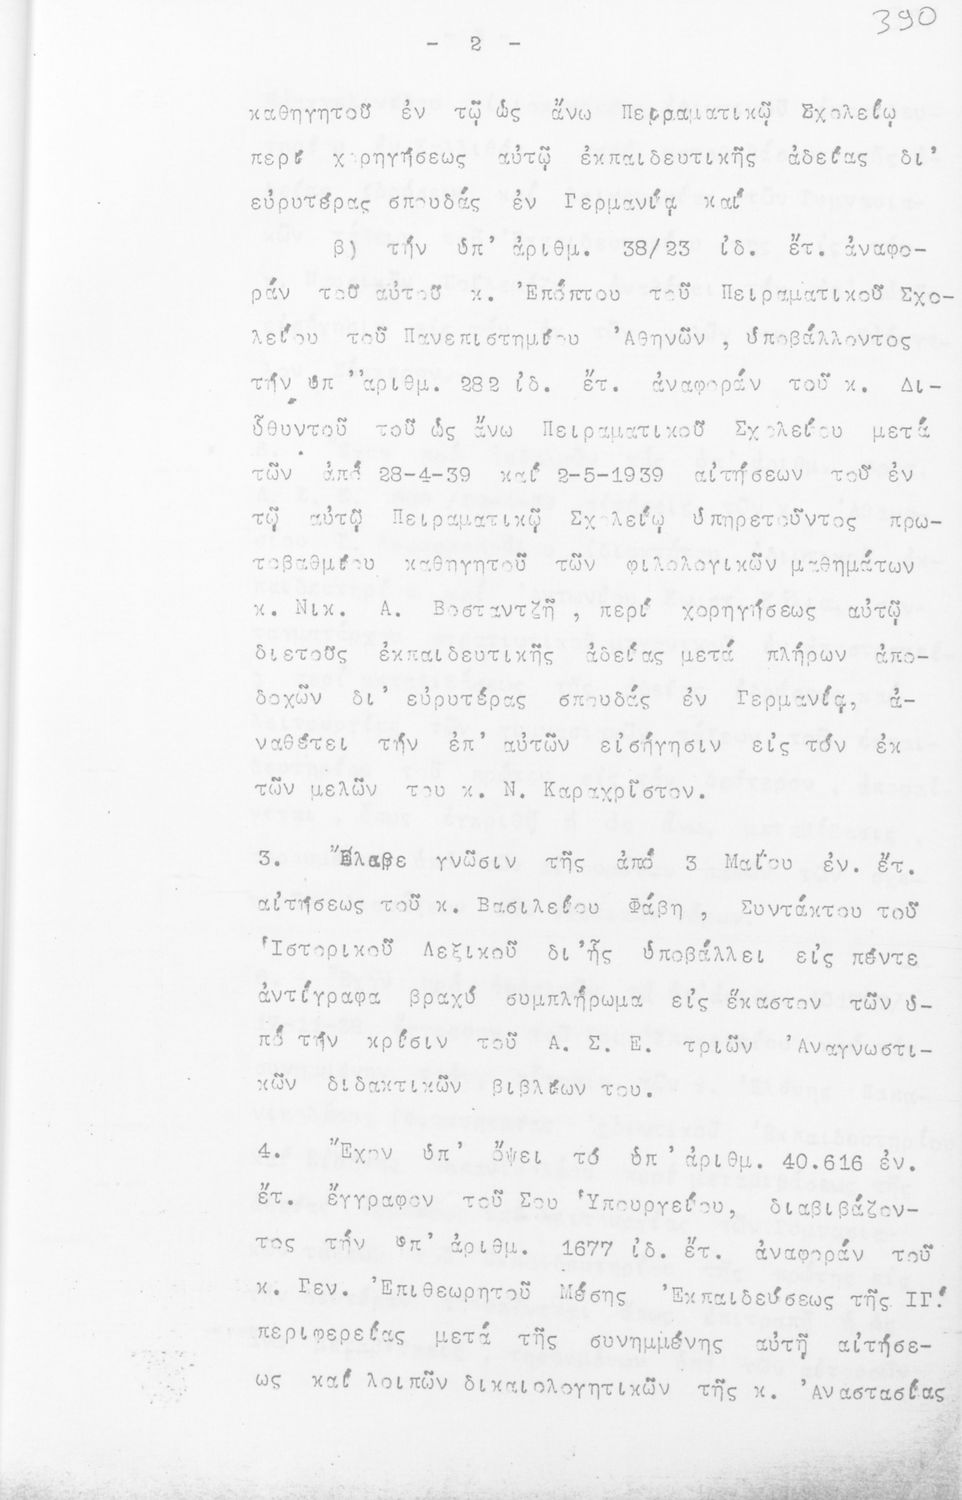 390
- 2 -
καθηγητοῦ ἐν τῷ ὡς ἄνω Πειραματικῷ Σχολείῳ
περί χορηγήσεως αὐτῷ ἐκπαιδευτικῆς ἀδείας δι'
εὐρυτέρας σπουδάς ἐν Γερμανίᾳ καί
β) τήν ὑπ' ἀριθμ. 38/23 ἰδ. ἔτ. ἀναφο-
ράν τοῦ αὐτοῦ κ. Ἐπόπτου τοῦ Πειραματικοῦ Σχο-
λείου τοῦ Πανεπιστημίου Ἀθηνῶν , ὑποβάλλοντος
τήν ὑπ ''αριθμ. 282 ἰδ. ἔτ. ἀναφοράν τοῦ κ. Δι-
θυντοῦ τοῦ ὡς ἄνω Πειραματικοῦ Σχολείου μετά
τῶν ἀπό 28-4-39 καί 2-5-1939 αἰτήσεων τοῦ ἐν
τῷ αὐτῷ Πειραματικῷ Σχολείῳ ὑπηρετοῦντος πρω-
τοβαθμίου καθηγητοῦ τῶν φιλολογικῶν μαθημάτων
κ. Νικ. Α. Βοσταντζῆ , περί χορηγήσεως αὐτῷ
διετοῦς ἐκπαιδευτικῆς ἀδείας μετά πλήρων ἀπο-
δοχῶν δι' εὐρυτέρας σπουδάς ἐν Γερμανίᾳ, ἀ-
ναθέτει τήν ἐπ' αὐτῶν εἰσήγησιν εἰς τόν ἐκ
τῶν μελῶν του κ. Ν. Καραχρῖστον.
3. Ἔλαβε γνῶσιν τῆς ἀπό 3 Μαΐου ἐν. ἔτ.
αἰτήσεως τοῦ κ. Βασιλείου Φάβη , Συντάκτου τοῦ
Ἱστορικοῦ Λεξικοῦ δι'ἧς ὑποβάλλει εἰς πέντε
ἀντίγραφα βραχύ συμπλήρωμα εἰς ἕκαστον τῶν ὑ-
πό τήν κρίσιν τοῦ Α. Σ. Ε. τριῶν Ἀναγνωστι-
κῶν διδακτικῶν βιβλίων του.
4. Ἔχον ὑπ' ὄψει τό ὑπ' ἀριθμ. 40.616 ἐν.
ἔτ. ἔγγραφον τοῦ Σου Ὑπουργείου, διαβιβάζον-
τος τήν ὑπ' ἀριθμ. 1677 ἰδ. ἔτ. ἀναφοράν τοῦ
κ. Γεν. Ἐπιθεωρητοῦ Μέσης Ἐκπαιδεύσεως τῆς ΙΓ΄
περιφερείας μετά τῆς συνημμένης αὐτῇ αἰτήσε-
ως καί λοιπῶν δικαιολογητικῶν τῆς κ. Ἀναστασίας